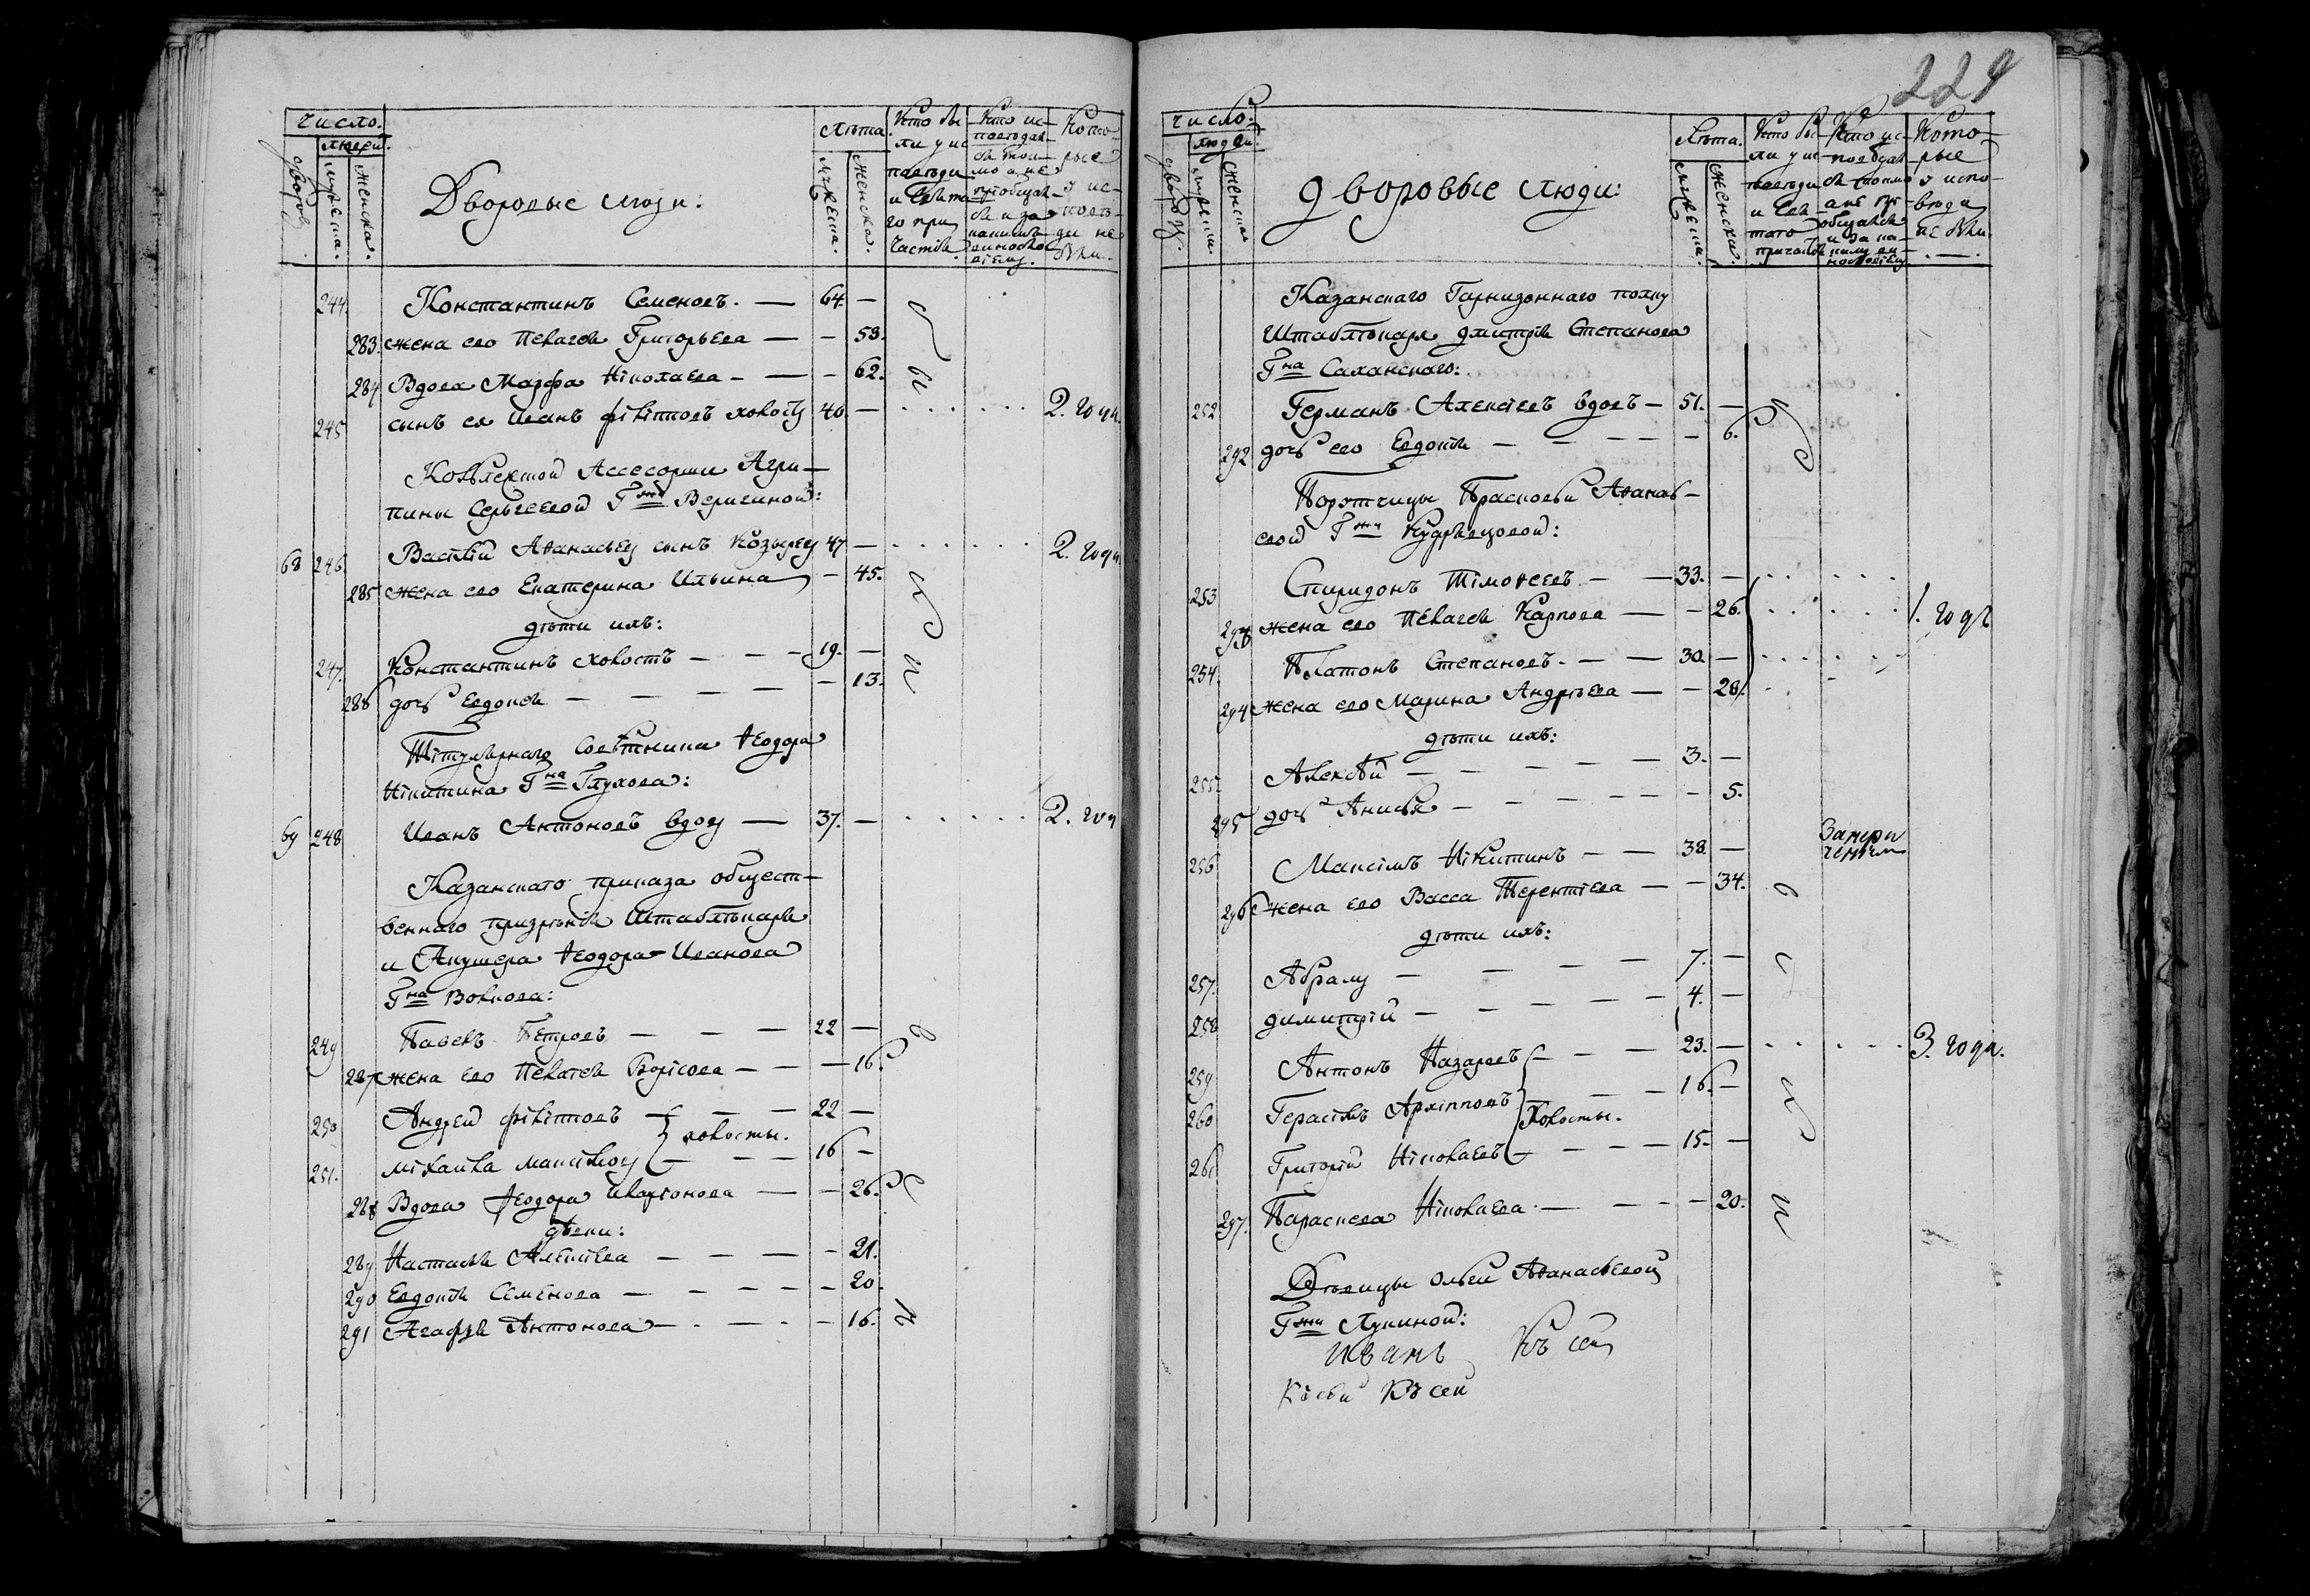 число.
людей.
дворовъ
мужеска.
женска.
Дворовые люди:
Лѣта.
мужеска.
женска.
Кто бы-
ли у ис-
повѣди
и свята-
го при-
частiя.
Кто ис-
поведал-
ся токи-
мо а не
прiобщал-
ся и за
какимъ
виносло-
вiемъ.
Кото-
рые
у ис-
повѣ-
ди не
были.
244. Константинъ Семеновъ. — 64. —
283. жена его Пелагея Григорьева — — 53.
284 Вдова Марфа Нiколаева — — — 62.
245 сынъ ея Иванъ фiлiпповъ холостъ 40. — 2. года.
Коллежской Ассесорши Агри-
пины Сергеевой Гжи Веригиной:
68 246. Василiй Аѳанасьевъ сынъ Козыревъ 47 — 2. года
285 жена его Екатерина Ильина — 45.
дѣти ихъ:
247. Константинъ холостъ — — — 19. —
286 дочь Евдокiя — — — — — 13.
Тiтулярнаго Советника Ѳеодора
Нiкитина Гна Глухова:
69 248 Иванъ Антоновъ вдовъ — 37. — 2. год
Казанскаго приказа общест-
веннаго призрѣнiя Штаблѣкаря
и Акушера Ѳеодора Иванова
Гна Волкова:
249 Павелъ Петровъ — — — 22 —
287 жена его Пелагея Борiсова — — — 16.
250 Андрей фiлiпповъ — — — 22 —
холосты.
251. Мiхаила Максiмовъ — — — 16 —
288 Вдова Ѳеодора Иларiонова — — 26.
девки:
289 Настасья Алексiева — — — — 21.
290 Евдокiя Семенова — — — — — 20.
291 Агафья Антонова — — — — 16.
229
число.
людей.
дворовъ.
мужеска.
женска
Дворовые люди:
Лѣта.
мужеска.
женска.
Кто бы-
ли у ис-
повѣди
и свя-
таго
причастiя
Кто ис-
поведал-
ся токмо
а не прi-
общался
и за ка-
кимъ ви-
нословiемъ
Кото-
рые
у испо-
веди
не были.
Казанскаго Гарнизоннаго полку
Штаблѣкаря Дмитрiя Степанова
Гна Саханскаго:
252 Германъ Алексiевъ вдовъ — 51. —
292 дочь его Евдокiя — — — — — 6.
Порутчицы Прасковьи Аѳанась-
евой Гжи Кудрявцовой:
253 Спиридонъ Тiмоѳеевъ. — — 33. —
293 жена его Пелагея Карпова — — 26. 1. годъ
254. Платонъ Степановъ. — — 30. —
294 жена его Марина Андрѣева — — 28.
дѣти ихъ:
255. Алексѣй — — — — — 3. —
295 дочь Анисья — — — — — — 5.
256 Максiмъ Нiкитинъ — — 38. —
296 жена его Васса Терентiева — — 34.
дѣти ихъ:
257. Абрамъ — — — — 7. —
258 Димитрiй — — — — — 4. —
259 Антонъ Назаровъ — — — 23. — 3. года.
260 Герасiмъ Архiпповъ — — 16. —
холосты.
261 Григорiй Нiколаевъ — — — — 15. —
297. Параскева Нiколаева — — — — 20.
Дѣвицы Ольги Аѳанасьевой
Гжи Лукиной:
Иванъ Къ сей
Къ сей Къ сей